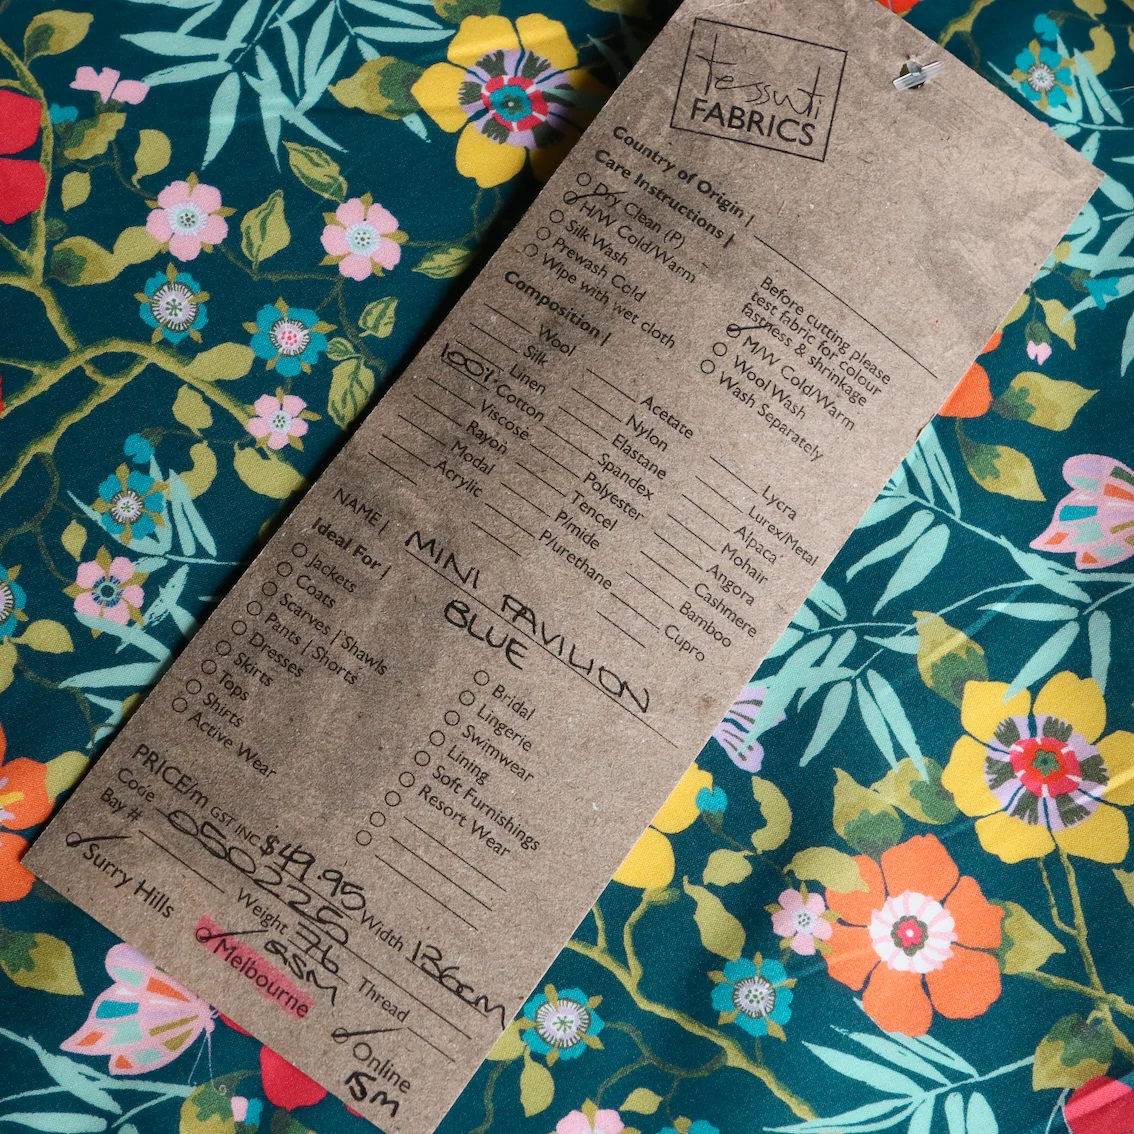 tessuti
FABRICS
Country of Origin |
Care Instructions |
Dry Clean (P)
H/W Cold/Warm
Silk Wash
Prewash Cold
Wipe with wet cloth
Before cutting please
test fabric for colour
fastness & shrinkage
M/W Cold/Warm
Wool Wash
Wash Separately
Composition |
Wool
Silk
Linen
100% Cotton
Viscose
Rayon
Modal
Acrylic
Acetate
Nylon
Elastane
Spandex
Polyester
Tencel
P/mide
P/urethane
Lycra
Lurex/Metal
Alpaca
Mohair
Angora
Cashmere
Bamboo
Cupro
NAME | MINI PAVILION
BLUE
Ideal For |
Jackets
Coats
Scarves | Shawls
Pants | Shorts
Dresses
Skirts
Tops
Shirts
Active Wear
Bridal
Lingerie
Swimwear
Lining
Soft Furnishings
Resort Wear
PRICE/m GST INC $49.95 Width 136cm
Code 050225
Bay # Weight 76 Thread
Surry Hills
Melbourne
Online
15M